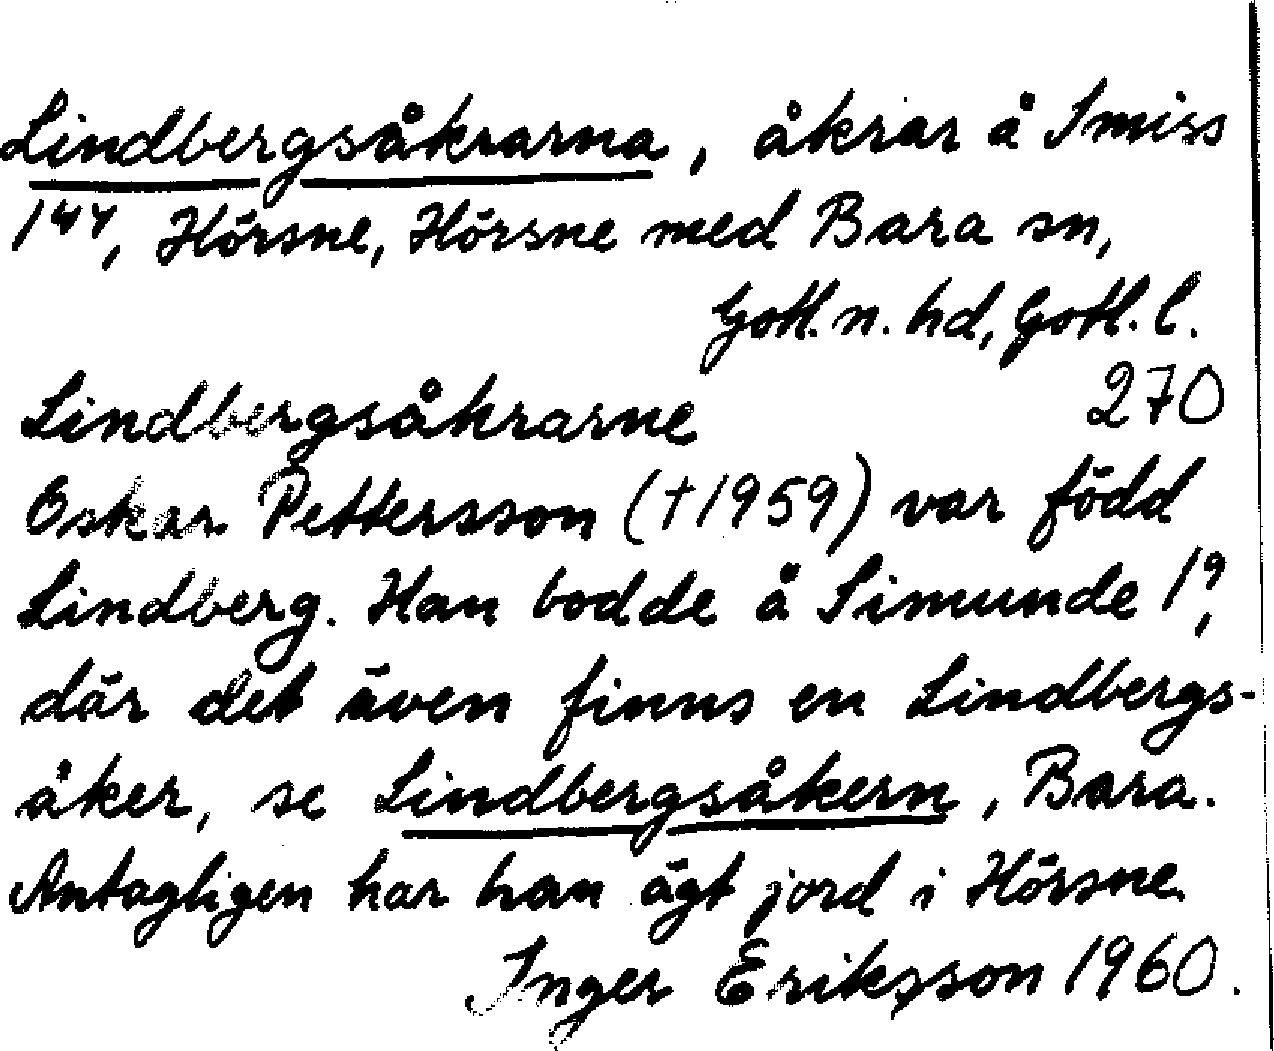 Lindbergsåkrarna, åkrar å Smiss
1⁴⁴, Hörsne, Hörsne med Bara sn,
Gotl. n. hd, Gotl. l.
Lindbergsåkrarne 270
Oskar Pettersson (†1959) var född
Lindberg. Han bodde å Simunde 1⁹,
där det även finns en Lindbergs-
åker, se Lindbergsåkern, Bara.
Antagligen har han ägt jord i Hörsne.
Inger Eriksson 1960.